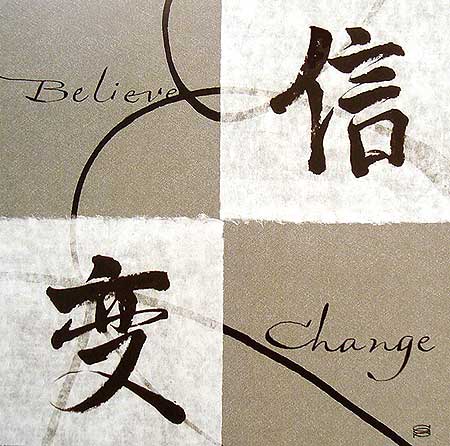 Believe
信
变
Change